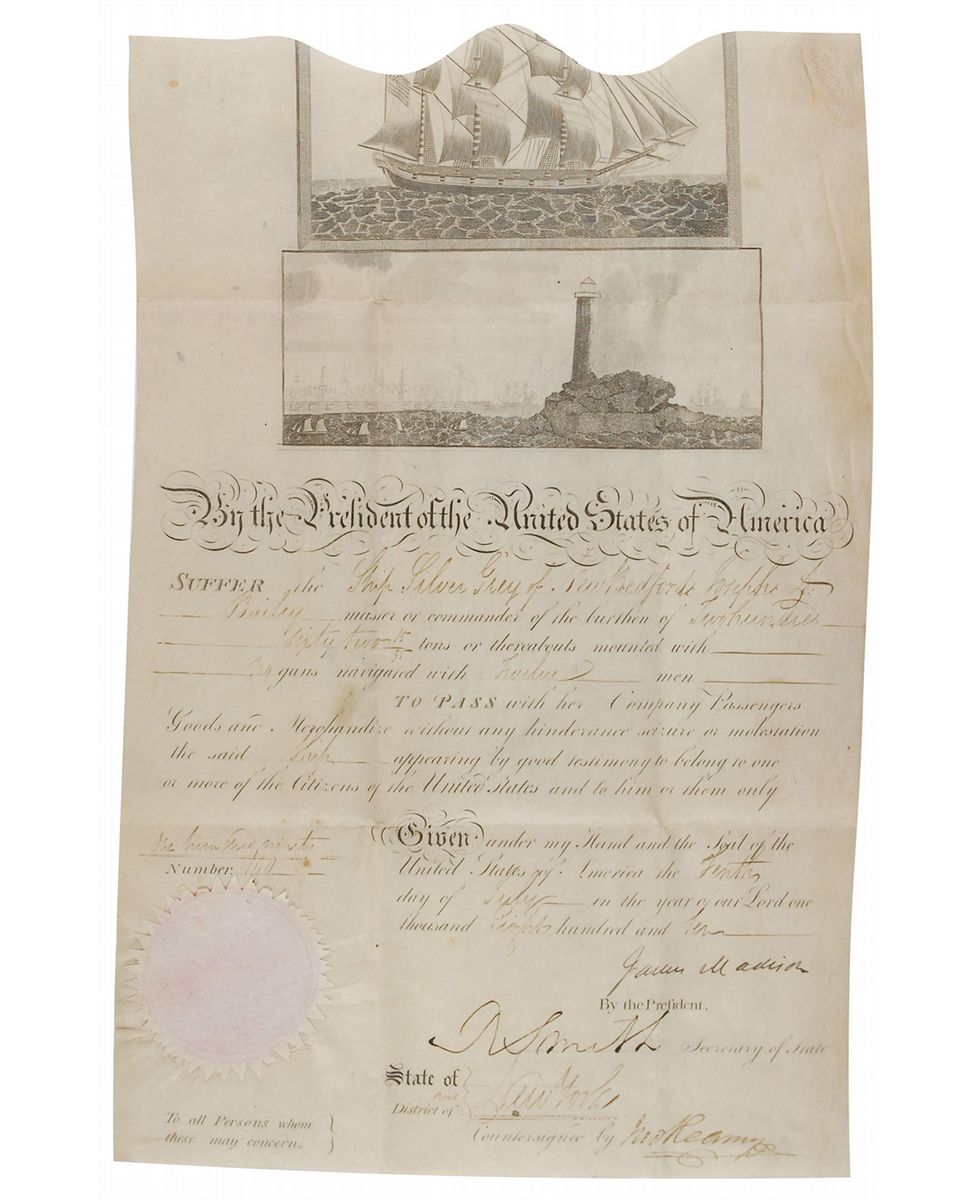 By the President of the United States of America
SUFFER the Ship Silver Grey of New Bedford Joseph
Bailey master or commander of the burthen of Two hundred
Sixty two tons or thereabouts mounted with
no guns navigated with Twelve men
TO PASS with her Company Passengers
Goods and Merchandize without any hinderance seizure or molestation
the said Ship appearing by good testimony to belong to one
or more of the Citizens of the United States and to him or them only
One hundred ninety
Number 190
Given under my Hand and the Seal of the
United States of America the Tenth
day of July in the year of our Lord one
thousand Eight hundred and Ten
James Madison
By the President.
R Smith Secretary of State
State of
and
District of
New York
Countersigned by
To all Persons whom
these may concern.